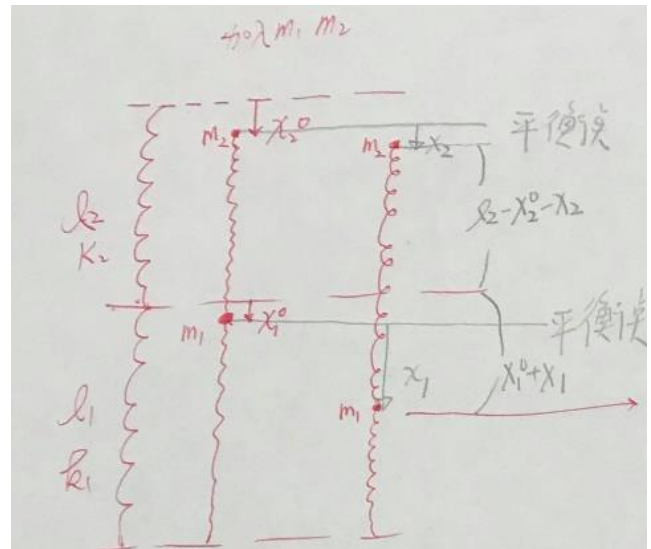 加入 m₁ m₂
m₂
x₂⁰
m₂
x₂
平衡位
l₂
K₂
l₂-x₂⁰-x₂
m₁
x₁⁰
平衡位
x₁
x₁⁰+x₁
m₁
l₁
k₁